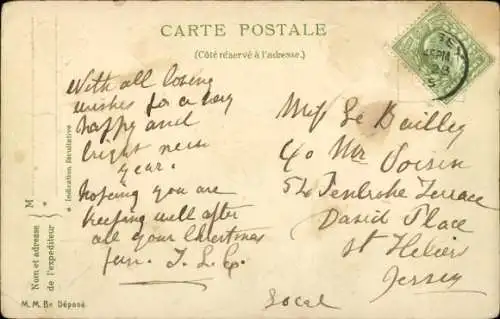 CARTE POSTALE
(Côté réservé à l'adresse.)
With all loving
wishes for a very
happy and
bright new
year.
Hoping you are
keeping well after
all your Christmas
fun. J.L.G.
Miss Le Bailley
c/o Mr Voisin
54 Pembroke Terrace
David Place
St Heliers
Jersey
Local
M
Nom et adresse
de l'expéditeur
* Indication facultative
M. M. Be Déposé.